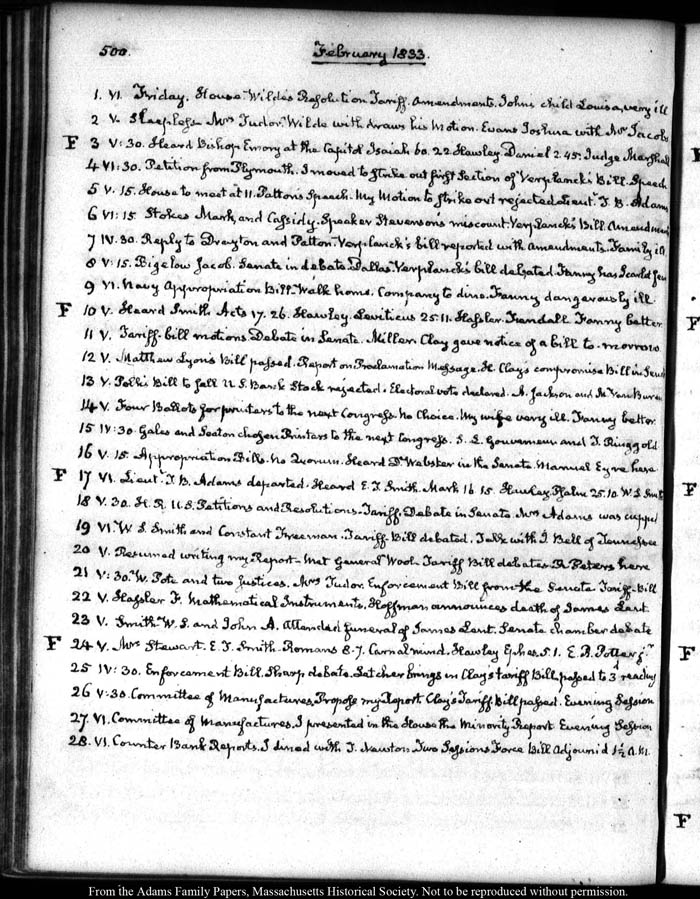 500. February 1833.
1. VI. Friday. House Wilde's Resolution Tariff Amendments. Johns child Louisa, very ill
2 V. Sleepless Mrs Tudor. Wilde withdraws his Motion. Evans Joshua with Mr Jacobs
F 3 V:30. Heard Bishop Emory at the Capitol Isaiah 60. 22. Hawley Daniel 2. 45. Judge Marshall
4 VI:30. Petition from Plymouth. I moved to strike out first Section of Verplanck's Bill. Speech
5 V. 15. House to meet at 11. Patton's Speech. My Motion to strike out rejected Lieut. T. B. Adams
6 VI:15 Stokes Mark, and Cassidy. Speaker Stevenson's miscount. Verplanck's Bill Amendment
7 IV.30. Reply to Drayton and Patton. Verplanck's bill reported with amendments. Family ill
8 V:15. Bigelow Jacob. Senate in debate Dallas. Verplanck's bill debated. Fanny has Scarlet fev
9 VI. Navy Appropriation Bill. Walk home. Company to dine. Fanny dangerously ill
F 10 V. Heard Smith Acts 17. 26. Hawley Leviticus 25.11. Hassler. Trendall Fanny better
11 V. Tariff-bill motions Debate in Senate. Miller. Clay gave notice of a bill to-morrow
12 V. Matthew Lyon's Bill passed. Report on Proclamation Message. H. Clay's compromise Bill in Senate
13 V. Polk's Bill to sell U S. Bank Stock rejected. Electoral vote declared. A. Jackson and M Van Buren
14 V. Four Ballots for printers to the next Congress. No Choice. My wife very ill. Fanny better
15 IV:30 Gales and Seaton chosen Printers to the next Congress. S. L. Gouverneur and T. Ringgold
16 V. 15. Appropriation Bills. No Quorum. Heard Dr. Webster in the Senate Manuel Eyre here
F 17 VI. Lieut. T. B. Adams departed. Heard E. J. Smith. Mark 16 15. Hawley Psalm 25.10. W. S. Smith
18 V. 30. H. R. U.S. Petitions and Resolutions. Tariff. Debate in Senate. Mrs Adams was cupped
19 VI. W. S. Smith and Constant Freeman. Tariff Bill debated. Talk with J. Bell of Tennessee
20 V. Resumed writing my Report. Met General Wool. Tariff Bill debates. R. Peters here
21 V:30. W. Pote and two Justices. Mrs Tudor. Enforcement Bill from the Senate Tariff-Bill
22 V. Hassler F. Mathematical Instruments. Hoffman announces death of James Lent
23 V. Smith W. S. and John A. Attended funeral of James Lent. Senate chamber debate
F 24 V. Mrs Stewart. E. J. Smith. Romans 8.7. Carnal mind. Hawley Ephes. 5. 1. E. R. Potter jr
25 IV:30. Enforcement Bill. Sharp debate. Letcher brings in Clay's tariff Bill, passed to 3d reading
26 V:30. Committee of Manufactures, Propose my Report Clay's Tariff Bill passed. Evening Session
27. VI. Committee of Manufactures. I presented in the House the Minority Report Evening Session
28. VI. Counter Bank Reports. I dined with T. Newton. Two Sessions Force Bill Adjourn'd 1½ A.M.
F
F
F
F
F
From the Adams Family Papers, Massachusetts Historical Society. Not to be reproduced without permission.